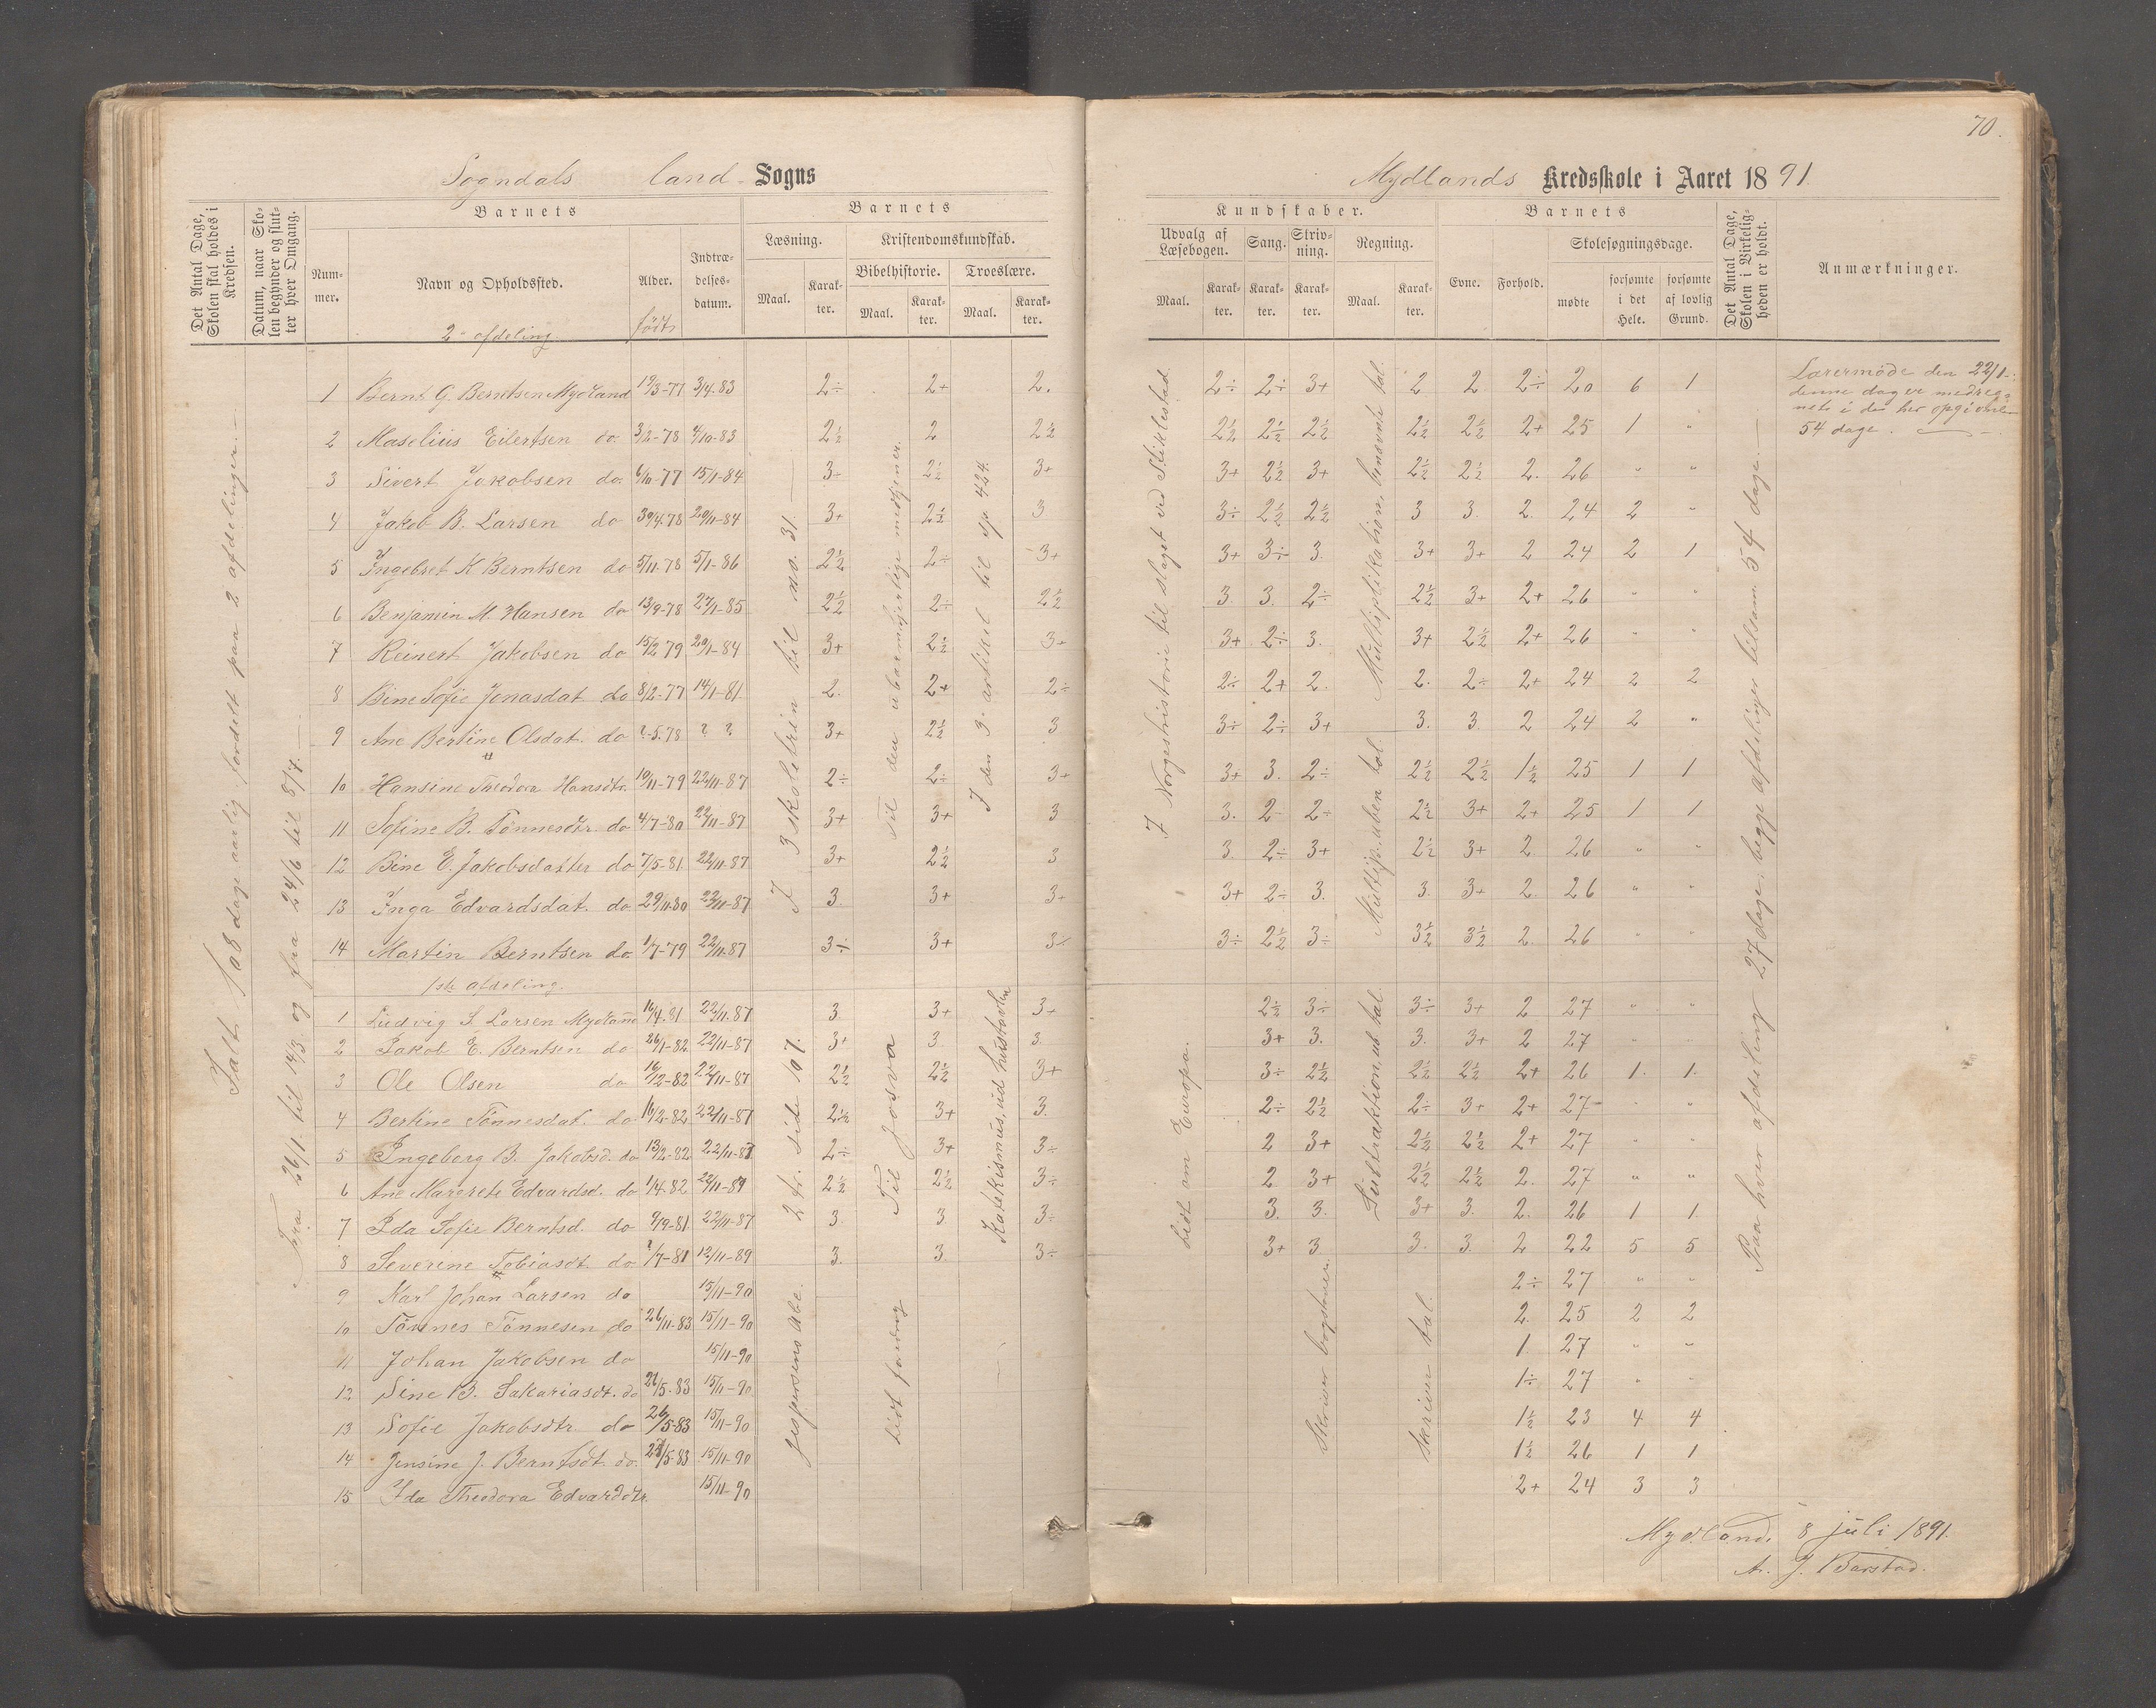 70.
Sogndals land Sogns
Mydlands Kredsskole i Aaret 1891.
Det Antal Dage, Skolen skal holdes i Kredsen.
Datum, naar Skolen begynder og slutter hver Omgang.
Barnets
Nummer.
Navn og Opholdssted.
Alder.
født
Indtrædelsesdatum.
Barnets
Læsning.
Kristendomskundskab.
Bibelhistorie.
Troeslære.
Maal.
Karakter.
Maal.
Karakter.
Maal.
Karakter.
Kundskaber.
Udvalg af Læsebogen.
Sang.
Skrivning.
Regning.
Maal.
Karakter.
Karakter.
Karakter.
Maal.
Karakter.
Barnets
Evne.
Forhold.
Skolesøgningsdage.
mødte
forsømte i det Hele.
forsømte af lovlig Grund.
Det Antal Dage, Skolen i Virkeligheden er holdt.
Anmærkninger.
2den afdeling.
1 Bernt G. Berntsen Mydland 19/3-77 3/4.83 2÷ 2+ 2. 2÷ 2÷ 3+ 2 2 2÷ 20 6 1
2 Maselius Eilertsen do 3/2-78 4/10-83 2½ 2 2½ 2½ 2½ 2½ 2½ 2½ 2+ 25 1 "
3 Sivert Jakobsen do. 6/10-77 15/1-84 3÷ 2½ 3+ 3+ 2½ 3+ 2½ 2½ 2. 26 " "
4 Jakob B. Larsen do 30/4.78 20/11-84 3+ 2½ 3 3÷ 2½ 2½ 3 3. 2. 24 2 "
5 Ingebret K Berntsen do 5/11.78 5/1-86 2½ 2÷ 3+ 3+ 3÷ 3. 3+ 3+ 2 24 2 1
6 Benjamin M. Hansen do 13/9-78 27/1-85 2½ 2÷ 2½ 3. 3. 2÷ 2½ 3+ 2+ 26 " "
7 Reinert Jakobsen do 15/2 79 20/1-84 3+ 2½ 3+ 3+ 2÷ 3. 3+ 2½ 2+ 26 " "
8 Bine Sofie Jonasdat. do 8/2-77 14/1-81 2. 2+ 2÷ 2÷ 2+ 2. 2. 2÷ 2+ 24 2 2
9 Ane Bertine Olsdat. do ?-5.78 ? ? 3+ 2½ 3 3÷ 2÷ 3+ 3. 3. 2 24 2 "
10 Hansine Theodora Hansdtr. 10/11-79 22/11-87 2÷ 2÷ 3+ 3+ 3. 2÷ 2½ 2½ 1½ 25 1 1
11 Sofine B. Tönnesdtr. do 4/7-80 22/11-87 3+ 3+ 3 3. 2 2÷ 2½ 3+ 2+ 25 1 1
12 Bine E. Jakobsdatter do 7/5-81 22/11.87 3+ 2½ 3 3. 2÷ 3+ 2½ 3+ 2 26 " "
13 Inga Edvardsdat. do 29/11.80 22/11-87 3. 3+ 3+ 3+ 2÷ 3. 3. 3+ 2 26 " "
14 Martin Berntsen do. 1/7-79 22/11.87 3÷ 3+ 3÷ 3÷ 2½ 3÷ 3½ 3½ 2. 26 " "
1ste afdeling.
1 Ludvig S. Larsen Mydland 16/4.81 22/11.87 3. 3+ 3+ 2½ 3÷ 3÷ 3+ 2 27 " "
2 Jakob E. Berntsen do 26/1-82 22/11-87 3+ 3. 3. 3+ 3. 3. 3+ 2 27 "
3 Ole Olsen do 16/12-82 22/11-87 2½ 2½ 3+ 3÷ 2½ 2½ 2½ 2+ 26 1. 1.
4 Bertine Tönnesdat. do 16/2-82 22/11-87 2½ 3+ 3. 2÷ 2½ 2÷ 3+ 2+ 27 " "
5 Ingeborg B. Jakobsd. do 13/2-82 22/11-87 2÷ 3+ 3÷ 2 3+ 2½ 2½ 2+ 27 " "
6 Ane Margrete Edvardsd. do 1/4.82 22/11-87 2½ 2½ 3÷ 2 3+ 2½ 2½ 2. 27 " "
7 Ida Sofie Berntsd. do 9/9-81 22/11-87 3. 3. 3÷ 3. 3. 3+ 3. 2. 26 1 1
8 Severine Tobiasdt. do ?/7-81 12/11-89 3. 3. 3÷ 3+ 3. 3. 3. 2 22 5 5
9 Karl Johan Larsen do 15/11-90 2÷ 27 " "
10 Tönnes Tönnesen do 26/11-83 15/11-90 2. 25 2 2
11 Johan Jakobsen do 15/11-90 1. 27 " "
12 Sine B. Sakariasdt. do 21/5-83 15/11-90 1÷ 27 " "
13 Sofie Jakobsdtr. do 26/5-83 15/11-90 1½ 23 4 4
14 Jensine J. Berntsdt. do. 15/11-90 1½ 26 1 1
15 Ida Theodora Edvardsdtr. 15/11-90 2+ 24 3 3
Ialt 108 dage aarlig fordelt paa 2 afdelinger.
Fra 26/1 til 14/3 og fra 24/6 til 8/7.
I 3 skoletrin til no. 31.
2 tr. side 107.
Jespersens Abc.
Til den ubarmhjertige medtjener.
Til Josva
Lidt
I den 3. artikel til sp. 424.
Katekismus, ud hustavlen
I Norgeshistorie til slaget ved Stiklestad.
Lidt om Europa.
Skriver bogstaver.
Multiplikation, benævnte tal.
Multip. uben. tal.
Subtraktion, ub. tal.
Skriver tal.
Paa hver afdeling 27 dage, begge afdelinger tilsam. 54 dage.
Lærermøde den 22/1
denne dag er medreg-
net i de her opgivne
54 dage.
Mydland, 8 juli 1891.
A. J. Barstad.